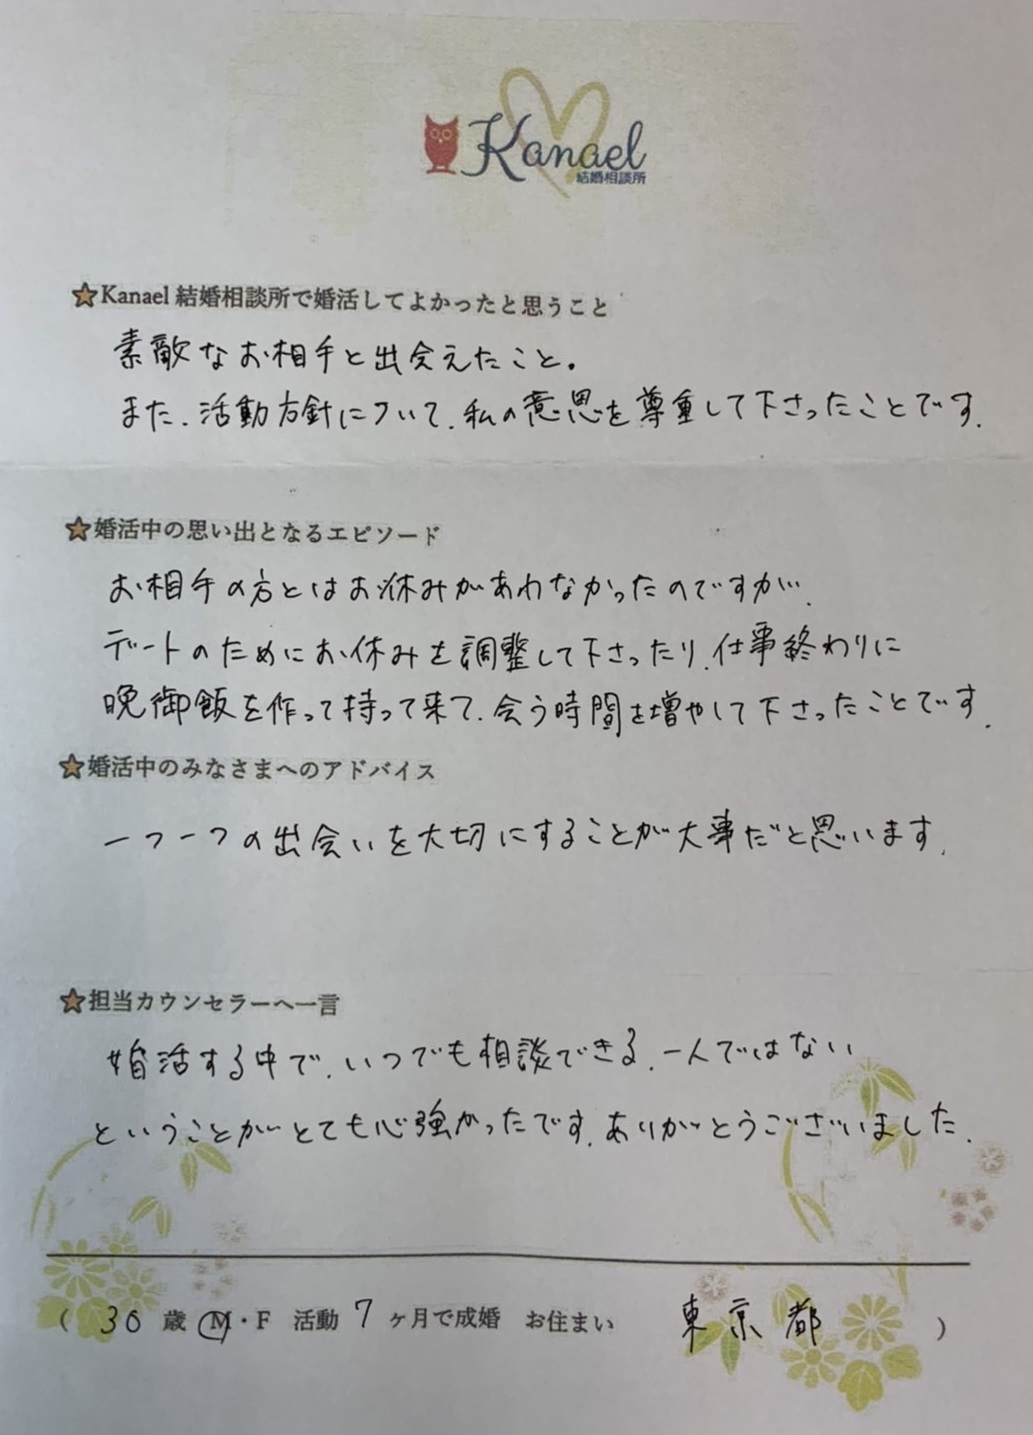 Kanael
結婚相談所
★Kanael 結婚相談所で婚活してよかったと思うこと
素敵なお相手と出会えたこと。
また、活動方針について、私の意思を尊重して下さったことです。
★婚活中の思い出となるエピソード
お相手の方とはお休みがあわなかったのですが、
デートのためにお休みを調整して下さったり、仕事終わりに
晩御飯を作って持って来て、会う時間を増やして下さったことです。
★婚活中のみなさまへのアドバイス
一つ一つの出会いを大切にすることが大事だと思います。
★担当カウンセラーへ一言
婚活する中で、いつでも相談できる、一人ではない
ということがとても心強かったです。ありがとうございました。
( 36 歳 M・F 活動 7 ヶ月で成婚 お住まい 東京都 )